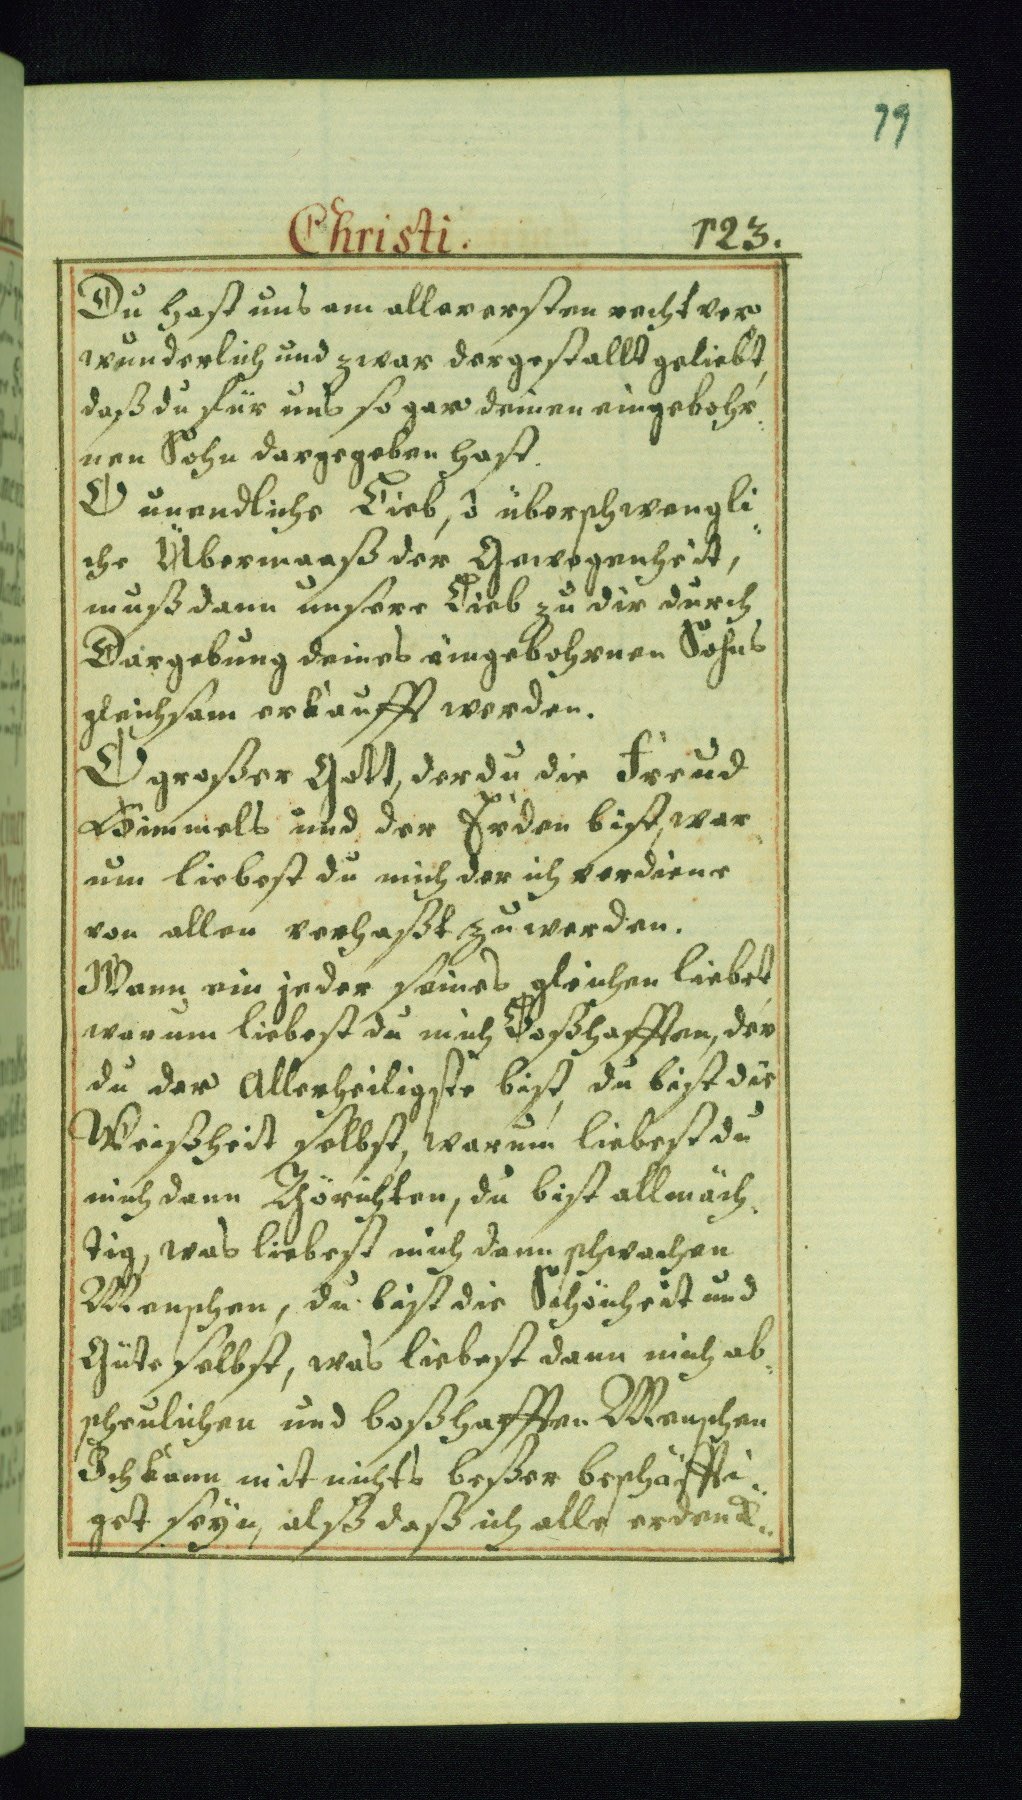 79
Christi. 123.
Du hast uns am allerersten recht ver
wunderlich und zwar dergestallt geliebt,
daß du für uns so gar deinen eingebohr
nen Sohn dargegeben hast.
O unendliche Lieb, o überschwengli
che Übermaaß der Gewogenheit,
muß dann unsere Lieb zu dir durch
Dargebung deines eingebohrnen Sohns
gleichsam erkaufft werden.
O großer Gott, der du die Freud
Himmels und der Erden bist, war
um liebest du mich der ich verdiene
von allen verhaßt zu werden.
Wann ein jeder seines gleichen liebet,
warum liebest du mich Boßhafften, der
du der Allerheiligste bist, du bist die
Weißheit selbst, warum liebest du
mich dann Thörichten, du bist allmäch
tig, was liebest mich dann schwachen
Menschen, du bist die Schönheit und
Güte selbst, was liebest dann mich ab
scheulichen und boßhafften Menschen
Ich kann mit nichts beßer beschäffti
get seyn, alß daß ich alle erdenk